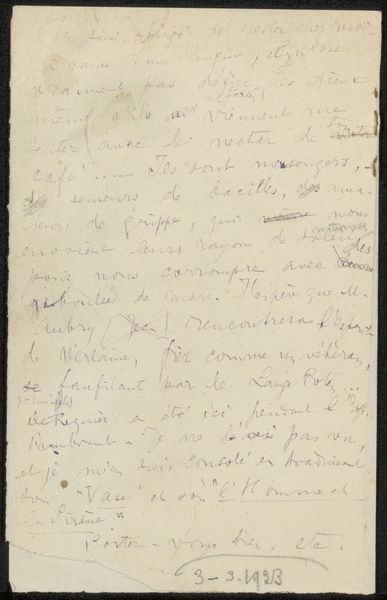 Je suis obligé de rester chez moi
à cause d'une angine, et je n'ose
vraiment pas défier les dieux
même s'ils (tartes) viennent me
tenter avec le nectar de
café..... Ils sont mensongers,
semeurs de bacilles, des ama-
teurs de grippe, qui nous
envoient leurs rayons de soleil mensonger
pour nous corrompre avec des
giboulées de mars. J'espère que M.
Aubry (Jean) rencontrera
de Verlaine, fier comme un vétéran,
se faufilant par le Lange Poten...
de Regnier a été ici pendant l'Exp.
Rembrandt. Je ne l'ai pas vu,
et je m'en suis consolé en traduisant
son "Vase" et son "l'Homme et
la Sirène"
Portez-vous bien, etc.
3-3-1923